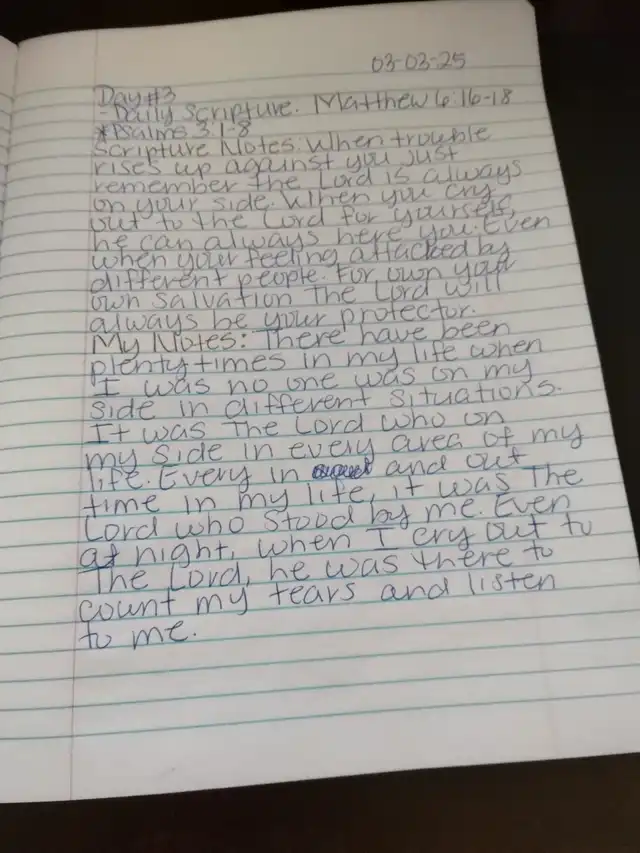 03-03-25
Day #3
- Daily Scripture. Matthew 6:16-18
*Psalms 3:1-8
Scripture Notes: When trouble
rises up against you just
remember the Lord is always
on your side. When you cry
out to the Lord for yourself,
he can always here you. Even
when your feeling attacked by
different people. For own your
own salvation The Lord will
always be your protector.
My Notes: There have been
plenty times in my life when
I was no one was on my
side in different situations.
It was The Lord who on
my side in every area of my
life. Every in and out
time in my life, it was The
Lord who stood by me. Even
at night, when I cry out to
The Lord, he was there to
count my tears and listen
to me.